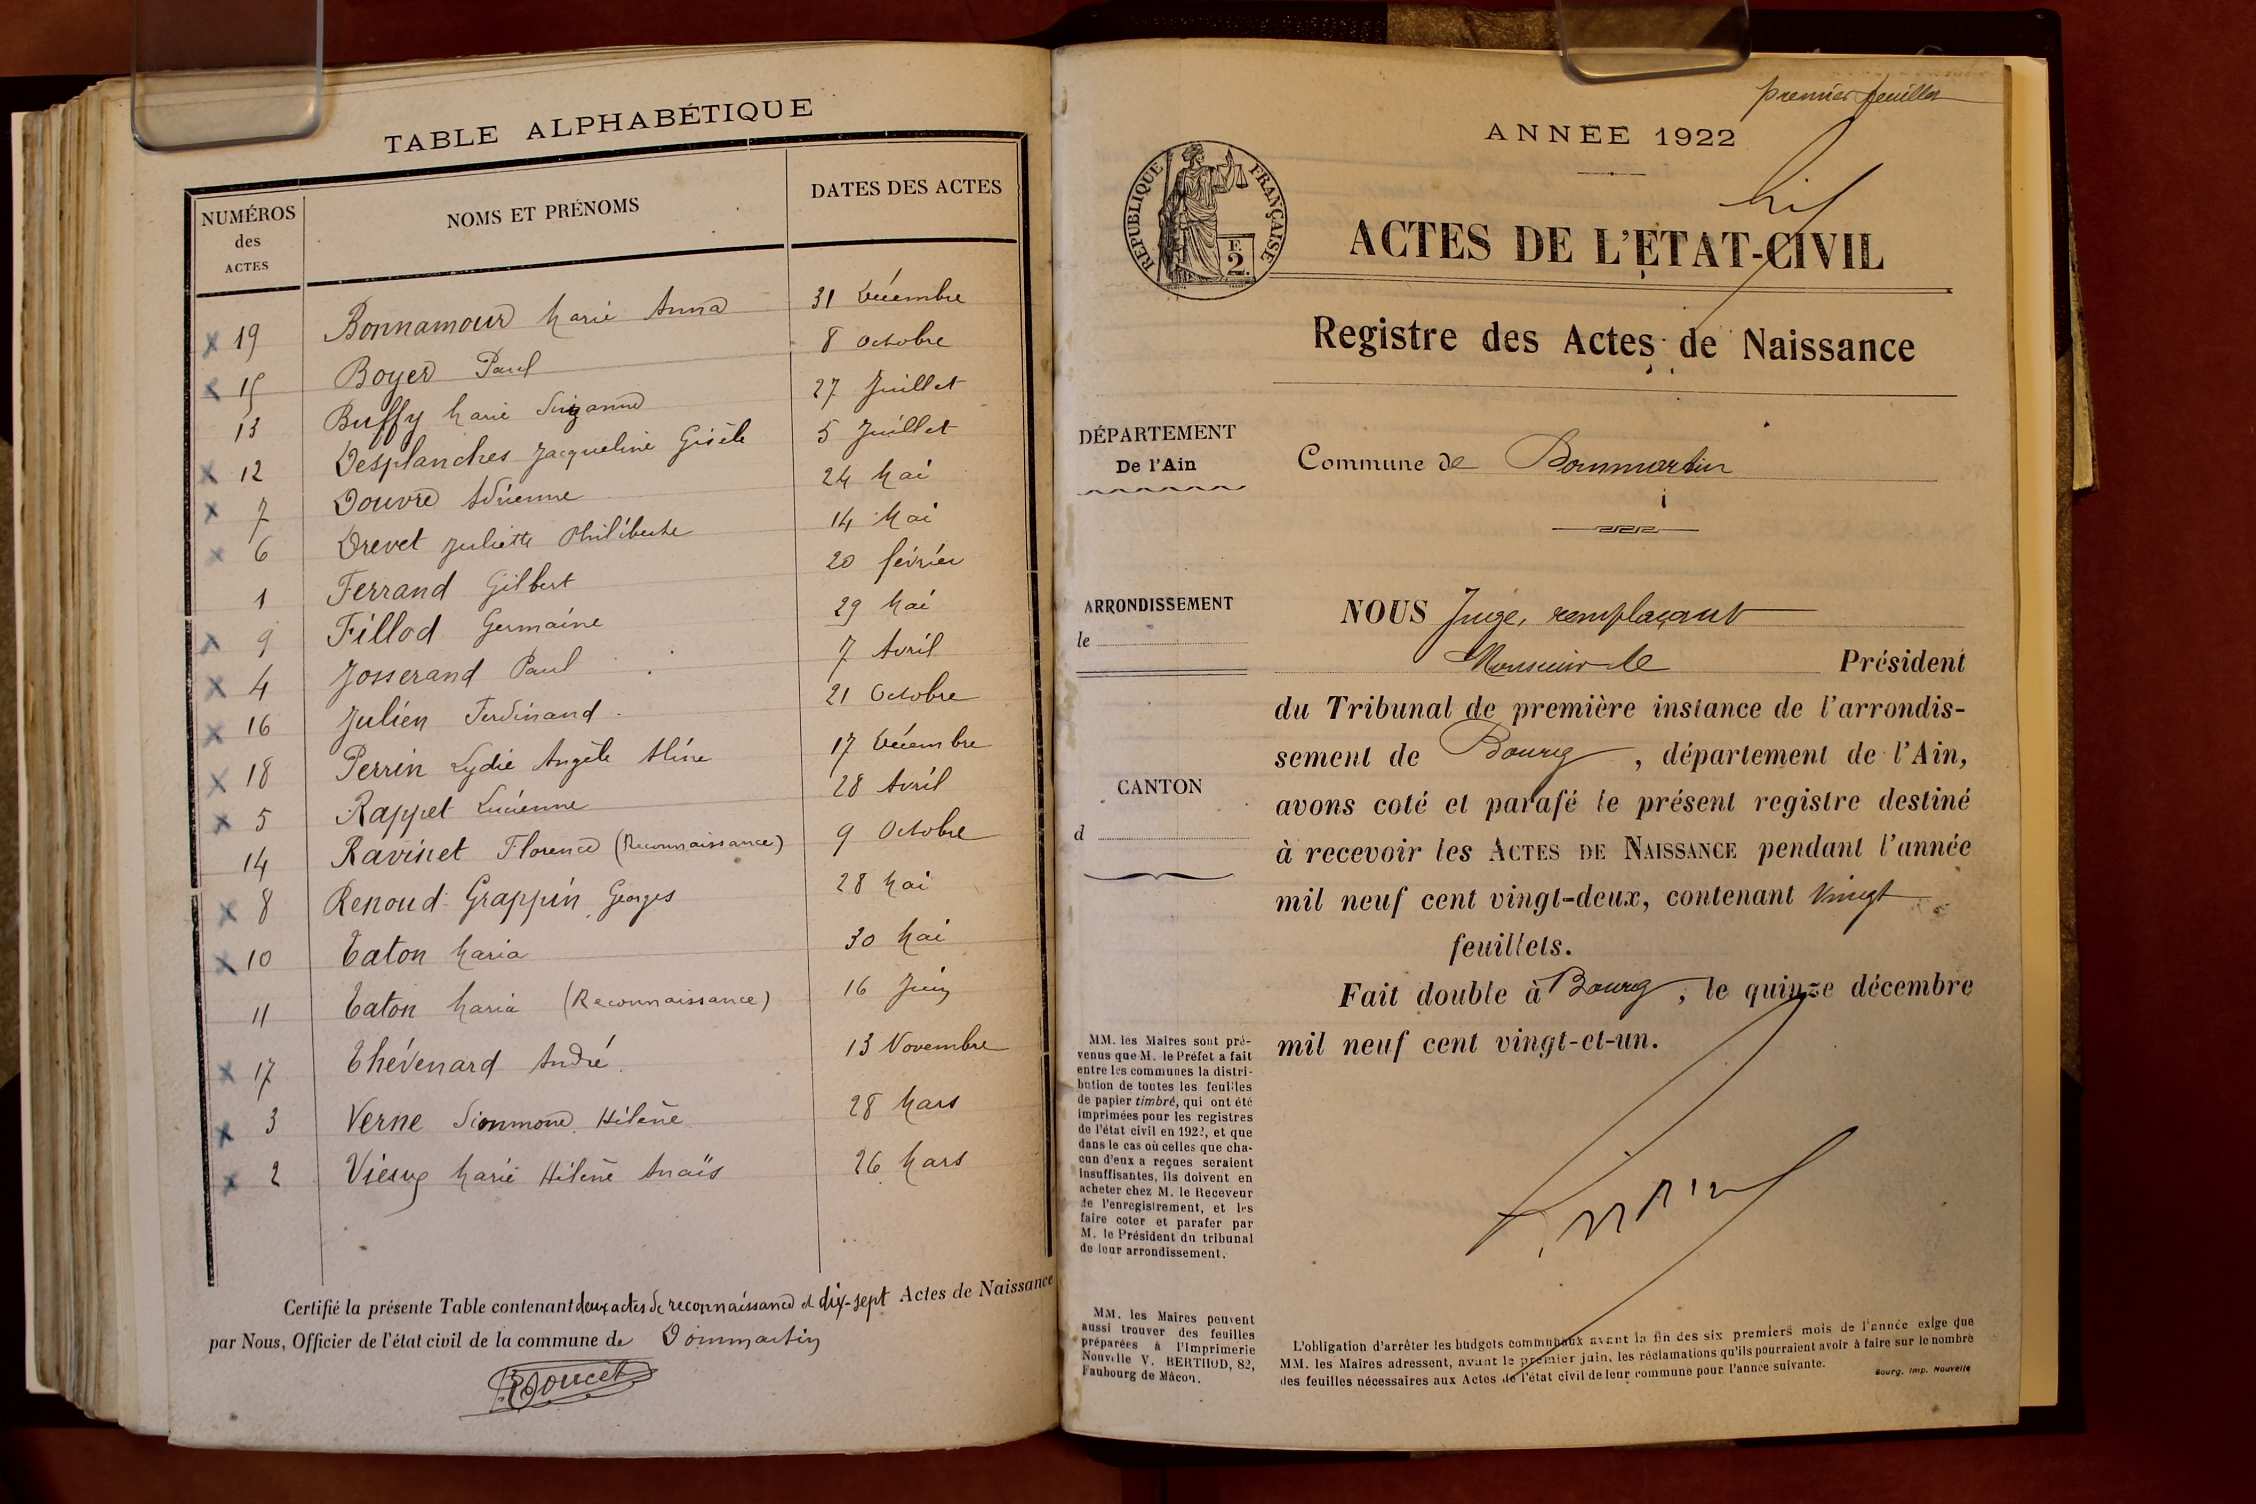 TABLE ALPHABÉTIQUE
NUMÉROS des ACTES NOMS ET PRÉNOMS DATES DES ACTES
19 Bonnamour Marie Anna 31 Décembre
15 Boyer Paul 8 Octobre
13 Buffy Marie Suzanne 27 Juillet
12 Desplanches Jacqueline Gisèle 5 Juillet
7 Douvre Adrienne 24 Mai
6 Drevet Juliette Philiberte 14 Mai
1 Ferrand Gilbert 20 février
9 Fillod Germaine 29 Mai
4 Josserand Paul 7 Avril
16 Julien Ferdinand 21 Octobre
18 Perrin Lydie Angèle Aline 17 Décembre
5 Rappet Lucienne 28 Avril
14 Ravinet Florence (Reconnaissance) 9 Octobre
8 Renoud Grappin Georges 28 Mai
10 Taton Maria 30 Mai
11 Taton Maria (Reconnaissance) 16 Juin
17 Thévenard André 13 Novembre
3 Verne Simone Hélène 28 Mars
2 Vieux Marie Hélène Anaïs 26 Mars
Certifié la présente Table contenant deux actes de reconnaissance et dix-sept Actes de Naissance
par Nous, Officier de l'état civil de la commune de Dommartin
Doucet
premier feuillet
ANNÉE 1922
RÉPUBLIQUE FRANÇAISE
F.
2.
ACTES DE L'ÉTAT-CIVIL
Registre des Actes de Naissance
DÉPARTEMENT
De l'Ain
Commune de Dommartin
ARRONDISSEMENT
le
CANTON
d
NOUS Juge, remplaçant
Monsieur le Président
du Tribunal de première instance de l'arrondis-
sement de Bourg, département de l'Ain,
avons coté et parafé le présent registre destiné
à recevoir les ACTES DE NAISSANCE pendant l'année
mil neuf cent vingt-deux, contenant vingt
feuillets.
Fait double à Bourg, le quinze décembre
mil neuf cent vingt-et-un.
MM. les Maires sont pré-
venus que M. le Préfet a fait
entre les communes la distri-
bution de toutes les feuilles
de papier timbré, qui ont été
imprimées pour les registres
de l'état civil en 1922, et que
dans le cas où celles que cha-
cun d'eux a reçues seraient
insuffisantes, ils doivent en
acheter chez M. le Receveur
de l'enregistrement, et les
faire coter et parafer par
M. le Président du tribunal
de leur arrondissement.
MM. les Maires peuvent
aussi trouver des feuilles
préparées à l'Imprimerie
Nouvelle V. BERTHOD, 82,
Faubourg de Mâcon.
L'obligation d'arrêter les budgets communaux avant la fin des six premiers mois de l'année exige que
MM. les Maires adressent, avant le premier juin, les réclamations qu'ils pourraient avoir à faire sur le nombre
des feuilles nécessaires aux Actes de l'état civil de leur commune pour l'année suivante.
Bourg. Imp. Nouvelle